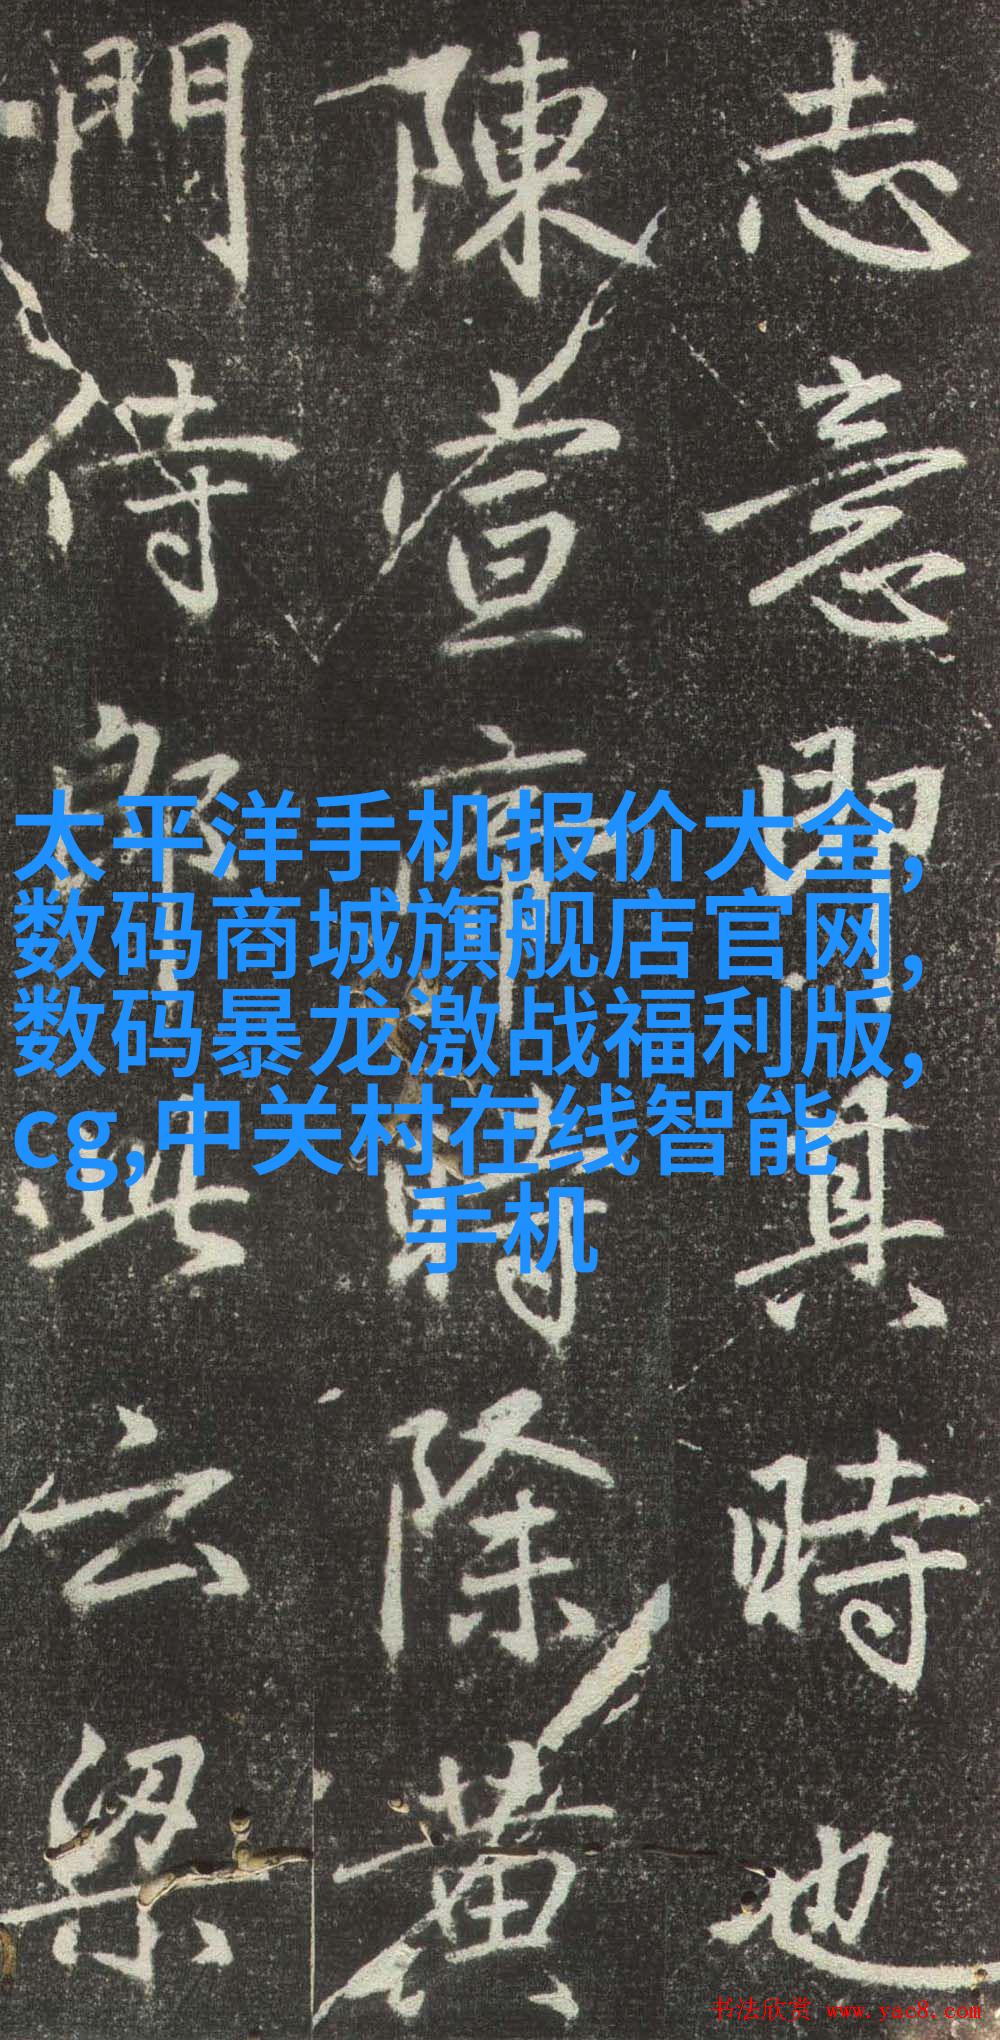 志意即其時也
陳宣帝時除黄
門侍郎此云梁
太平洋手机报价大全,
数码商城旗舰店官网,
数码暴龙激战福利版,
cg,中关村在线智能
手机
书法欣赏 www.yac8.com